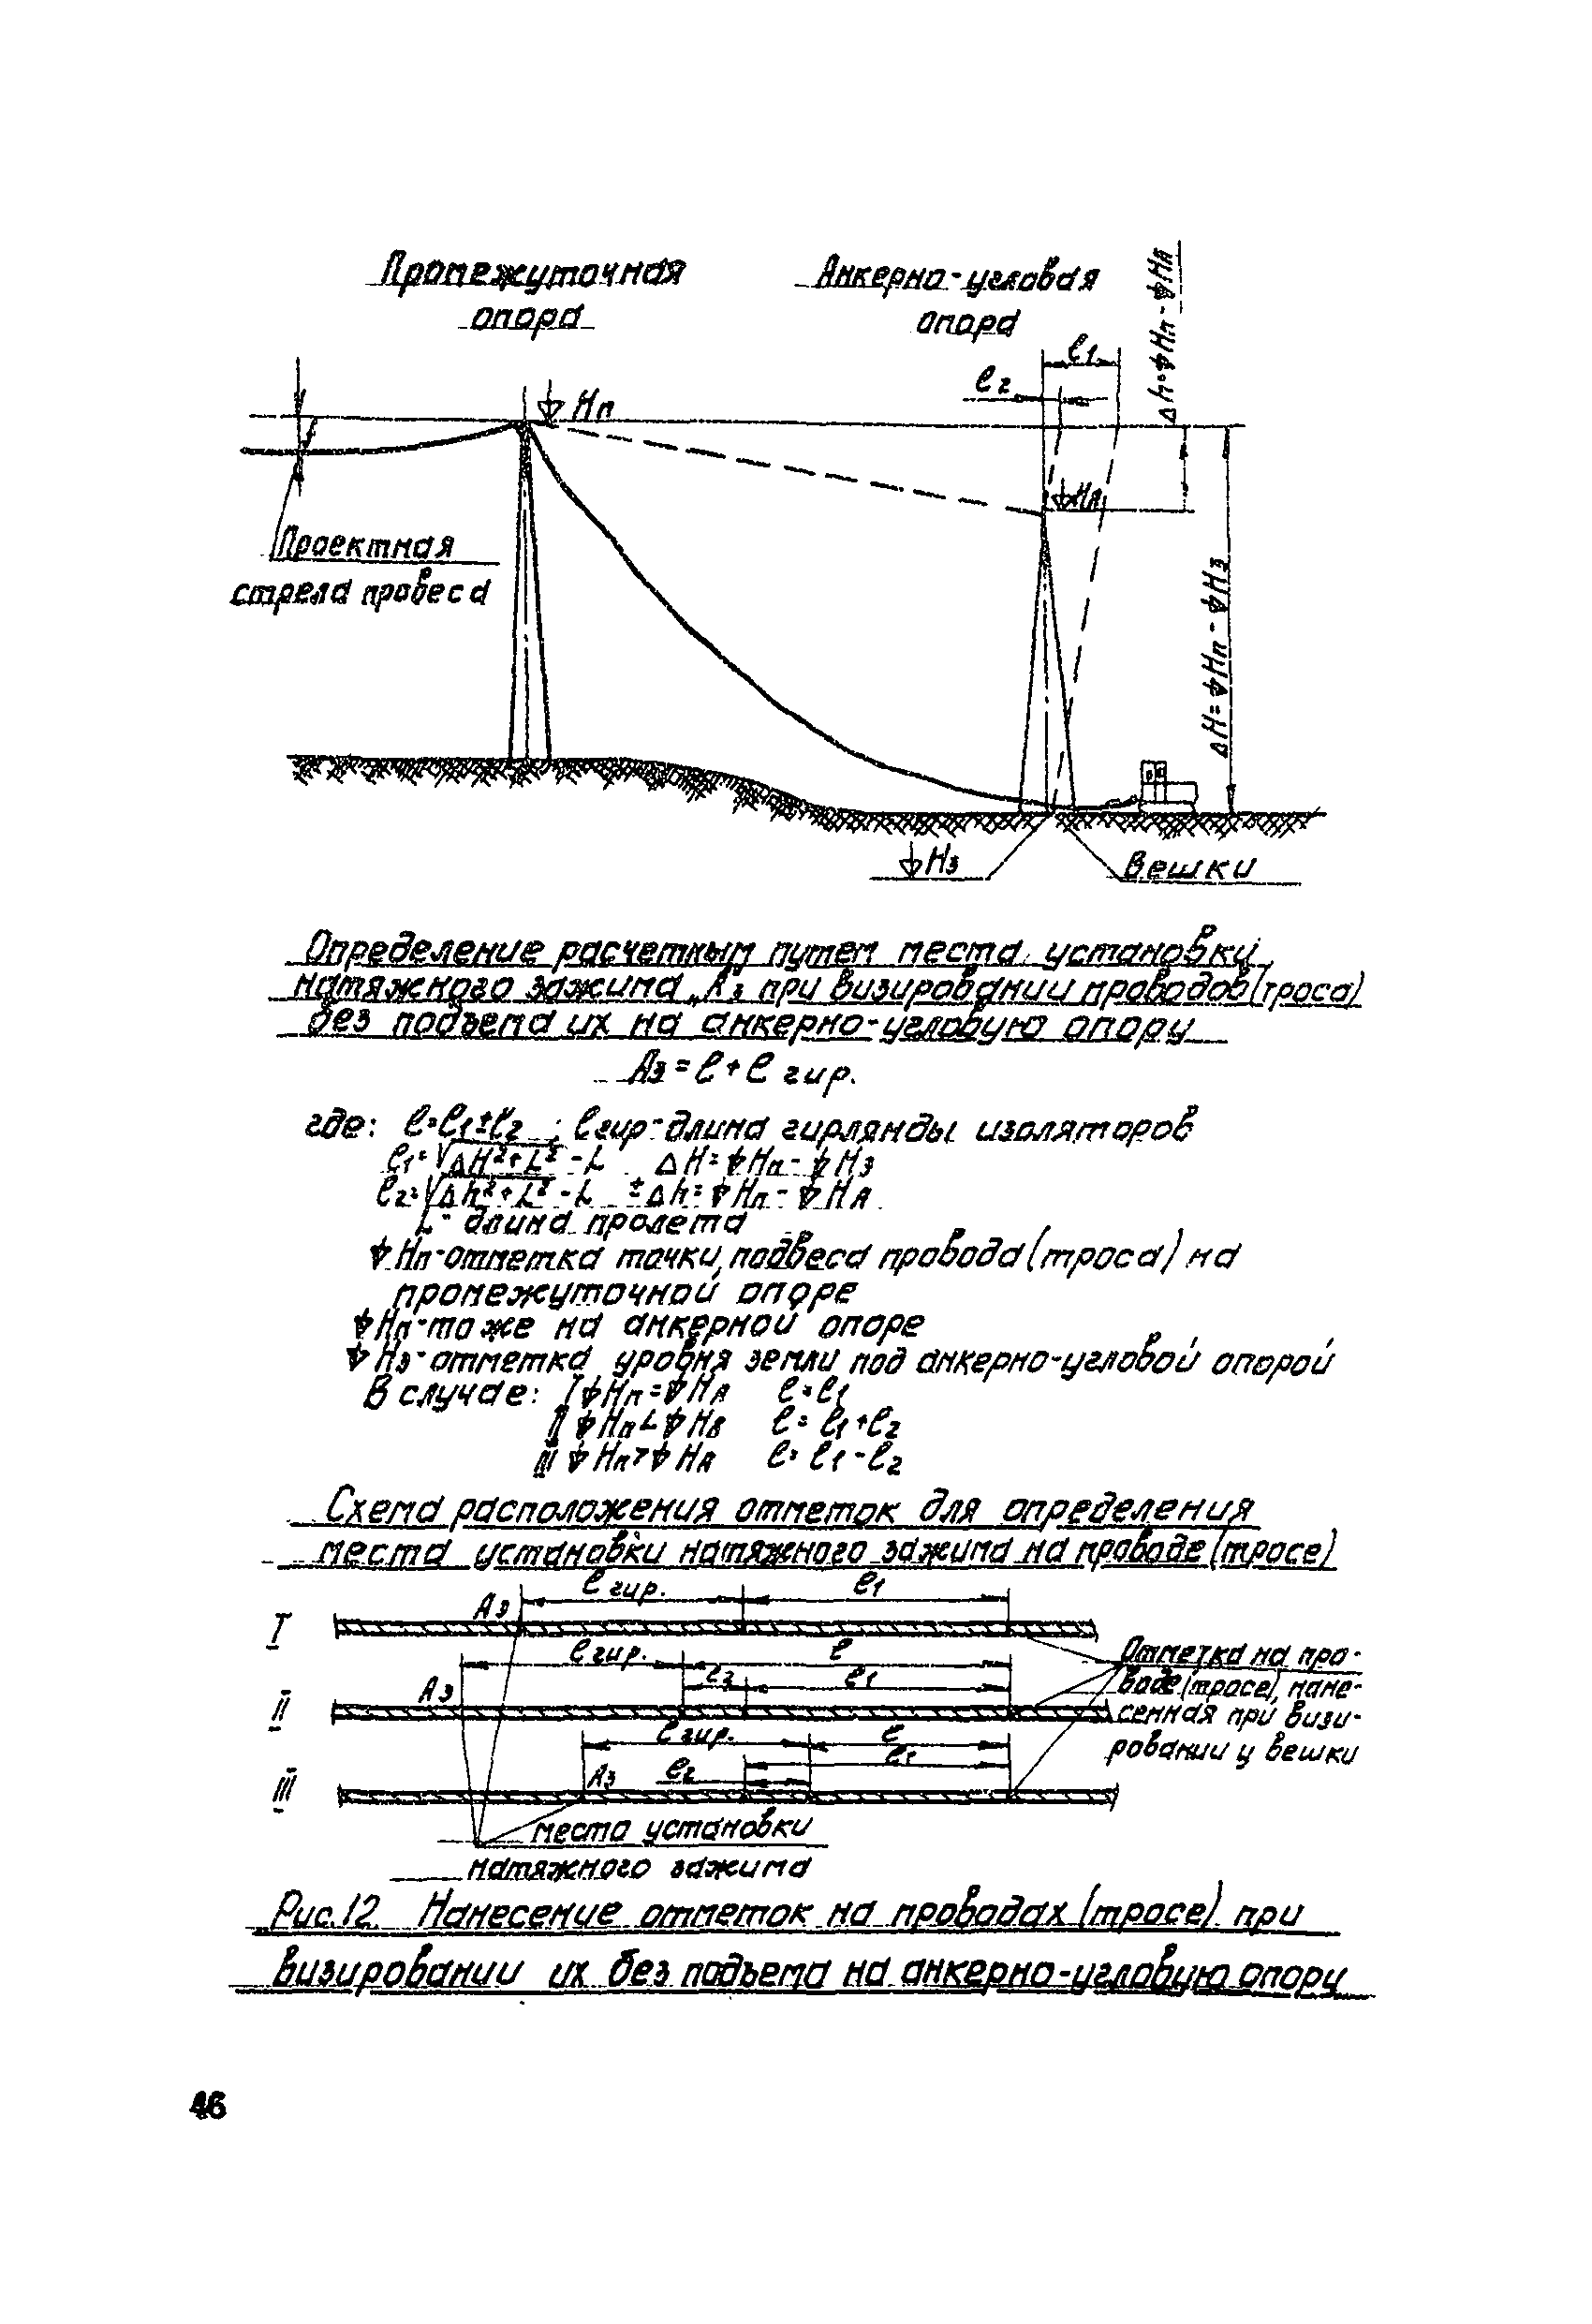 Промежуточная
опора
Анкерно-угловая
опора
Δh=∇Нп-∇НА
ℓ1
ℓ2
∇Нп
∇НА
Проектная
стрела провеса
ΔН=∇Нп-∇Нз
∇Нз
Вешки
Определение расчетным путем места установки
натяжного зажима „Аз при визировании проводов(троса)
без подъема их на анкерно-угловую опору
Аз=ℓ+ℓ гир.
где: ℓ=ℓ1±ℓ2 ; ℓгир-длина гирлянды изоляторов
ℓ1=√ΔН²+L² -L ΔН=∇Нп-∇Нз
ℓ2=√Δh²+L² -L ±Δh=∇Нп-∇НА
L- длина пролета
∇Нп-отметка точки подвеса провода(троса) на
промежуточной опоре
∇Нп-то же на анкерной опоре
∇Нз-отметка уровня земли под анкерно-угловой опорой
В случае: I ∇Нп=∇НА ℓ=ℓ1
II ∇Нп<∇НА ℓ=ℓ1+ℓ2
III ∇Нп>∇НА ℓ=ℓ1-ℓ2
Схема расположения отметок для определения
места установки натяжного зажима на проводе(тросе)
I Аз ℓ гир. ℓ1
II Аз ℓ гир. ℓ ℓ2 ℓ1
III Аз ℓ гир. ℓ ℓ2 ℓ1
Отметка на про-
воде(тросе), нане-
сенная при визи-
ровании у вешки
места установки
натяжного зажима
Рис.12. Нанесение отметок на проводах (тросе) при
визировании их без подъема на анкерно-угловую опору
46